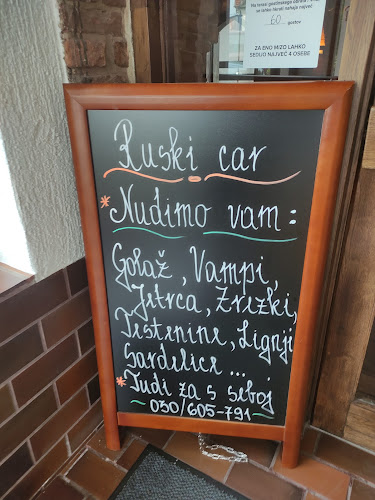 se lahko hkrati nahaja največ
60 gostov
ZA ENO MIZO LAHKO
SEDIJO NAJVEČ 4 OSEBE
Ruski car
*Nudimo vam:
Golaž, Vampi,
Jetrca, Zrezki,
Testenine, Lignji
Sardelice...
*Tudi za s seboj
- 030/605-791 -